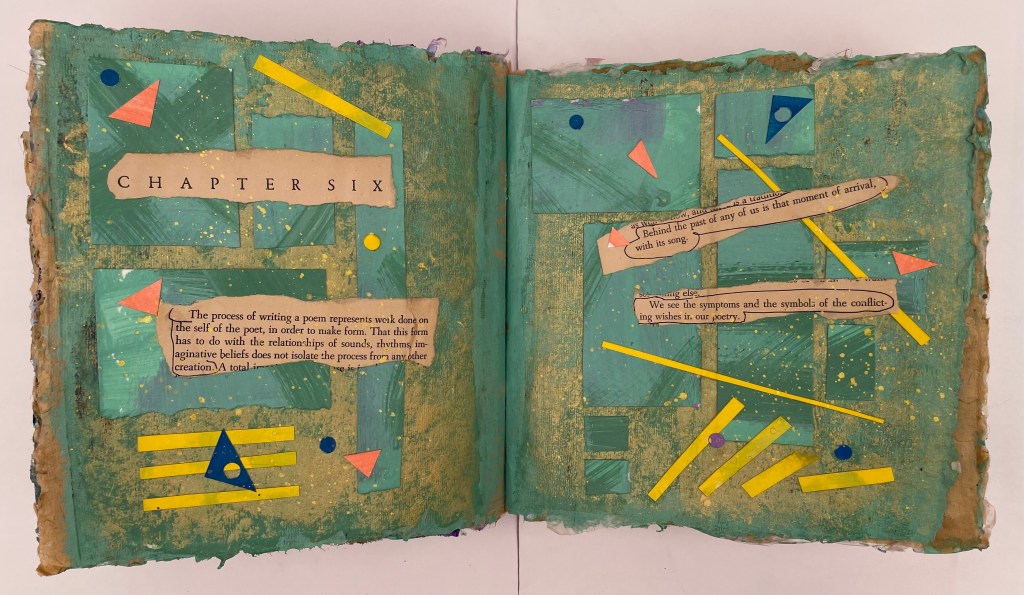 CHAPTER SIX
The process of writing a poem represents work done on
the self of the poet, in order to make form. That this form
has to do with the relationships of sounds, rhythms, im-
aginative beliefs does not isolate the process from any other
creation. A total
is a
Behind the past of any of us is that moment of arrival,
with its song.
else.
We see the symptoms and the symbols of the conflict-
ing wishes in our poetry.